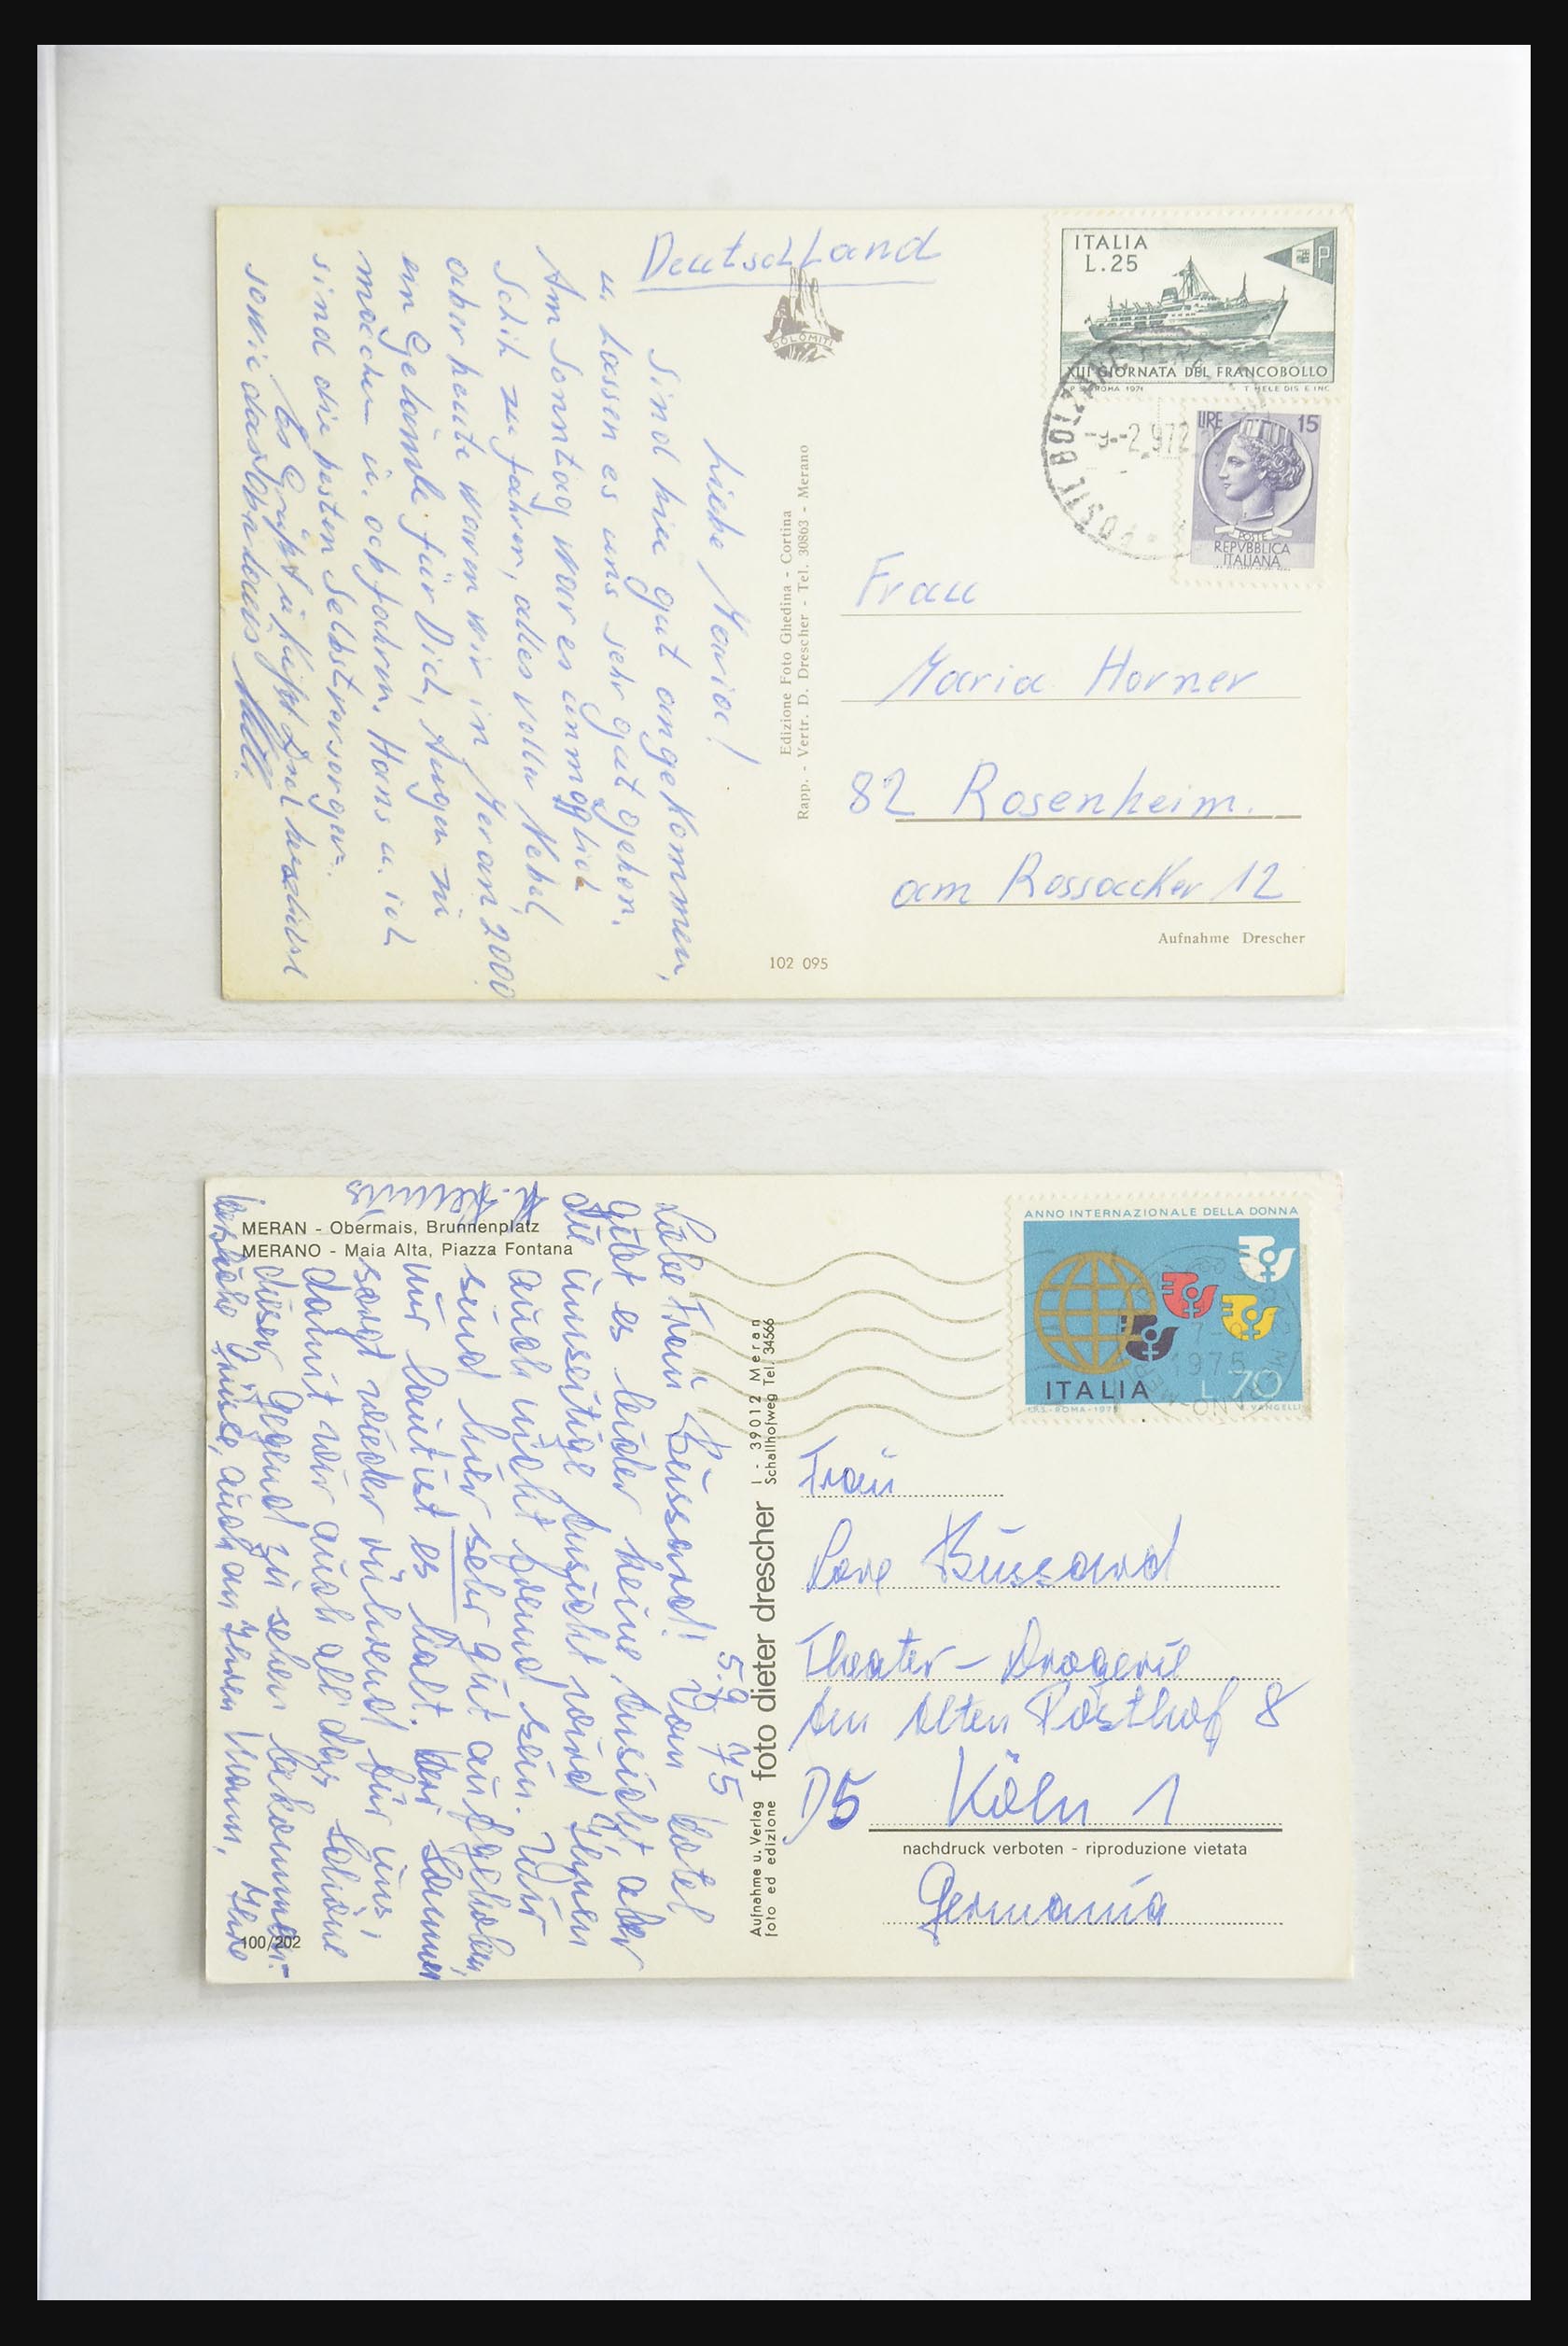 Deutschland
DOLOMITI
ITALIA
L.25
XIII GIORNATA DEL FRANCOBOLLO
ROMA 1971
LIRE 15
POSTE
REPVBBLICA
ITALIANA
POSTE BOLZANO
-2.972
Liebe Maria!
Sind hier gut angekommen,
u. lassen es uns sehr gut gehen.
Am Sonntag war es unmöglich
Schih zu fahren, alles voller Nebel,
aber heute waren wir in Meran 2000
ein Gelände für Dich, Augen zu
machen u. abfahren. Hans u. ich
sind die besten Selbstversorger.
Es Grüßt u. Küßt Dich
sowie das
Edizione Foto Ghedina - Cortina
Rapp. - Vertr. D. Drescher - Tel. 30863 - Merano
Frau
Maria Horner
82 Rosenheim.
am Rossacker 12
Aufnahme Drescher
102 095
MERAN - Obermais, Brunnenplatz
MERANO - Maia Alta, Piazza Fontana
ANNO INTERNAZIONALE DELLA DONNA
ITALIA L.70
1975
5.9.75
Liebe Frau Büssard! Vom Hotel
gibt es leider keine Ansicht, aber
die umseitige Ansicht wird Ihnen
auch nicht fremd sein. Wir
sind hier sehr gut aufgehoben,
nur laut ist es halt. Der Sommer
sorgt wieder rührend für uns,
damit wir auch all das Schöne
dieser Gegend zu sehen bekommen.-
Herzliche Grüsse, auch an Ihren Mann, Ihre
100/202
Aufnahme u. Verlag foto dieter drescher I - 39012 Meran
foto ed edizione Schallhofweg Tel. 34566
Frau
Lore Büssard
Theater - Drogerie
Am Alten Posthof 8
D5 Köln 1
nachdruck verboten - riproduzione vietata
Germania